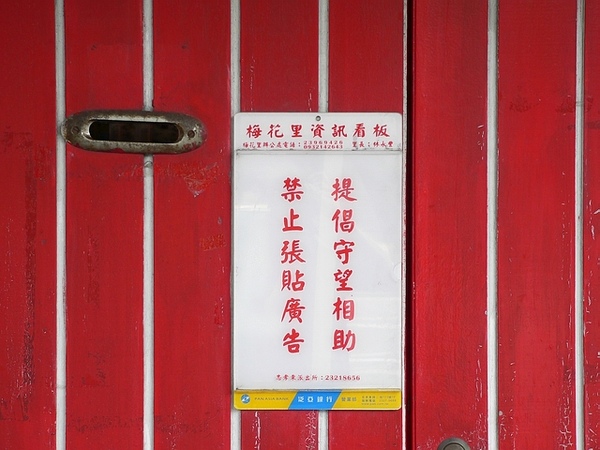 梅花里資訊看板
梅花里辦公處電話：23969426 里長：林永豐
0932142643
提倡守望相助
禁止張貼廣告
忠孝東派出所：23218656
泛亞銀行